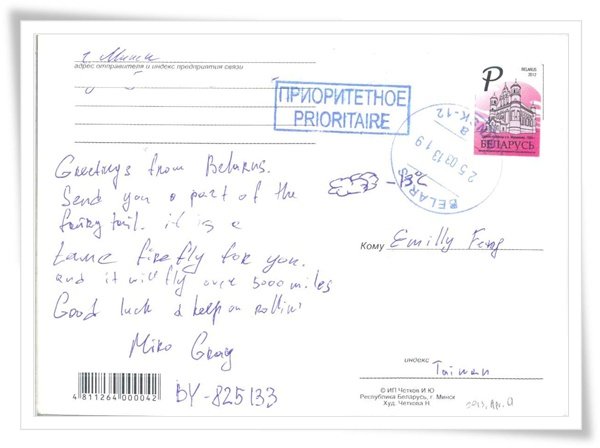 г. Минск
адрес отправителя и индекс предприятия связи
ПРИОРИТЕТНОЕ
PRIORITAIRE
P
BELARUS
2012
БЕЛАРУСЬ
BELARUS
25 03 13 19
Greetings from Belarus.
Send you a part of the
fairy tail. it is a
tame firefly for you.
and it will fly over 5000 miles
Good luck & keep on rollin'
Miro Gray
Кому Emilly Feng
индекс
Taiwan
4 811264 000042
BY-825133
© ИП Четков И Ю
Республика Беларусь, г. Минск
Худ. Четкова Н.
2013, Apr.